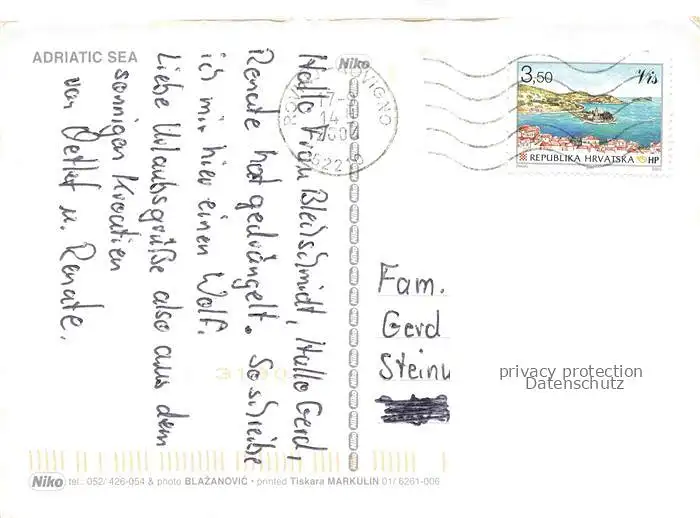 ADRIATIC SEA
Hallo Frau Bleischmidt, Hallo Gerd,
Renate hat gedrängelt. So schreibe
ich mir hier einen Wolf.
Liebe Urlaubsgrüße also aus dem
sonnigen Kroatien
von Detlef u. Renate.
Niko
ROVINJ - ROVIGNO
14
3,50
Vis
REPUBLIKA HRVATSKA HP
Fam.
Gerd
Steinu
privacy protection
Datenschutz
Niko tel.: 052/ 426-054 & photo BLAŽANOVIĆ • printed Tiskara MARKULIN 01/ 6261-006